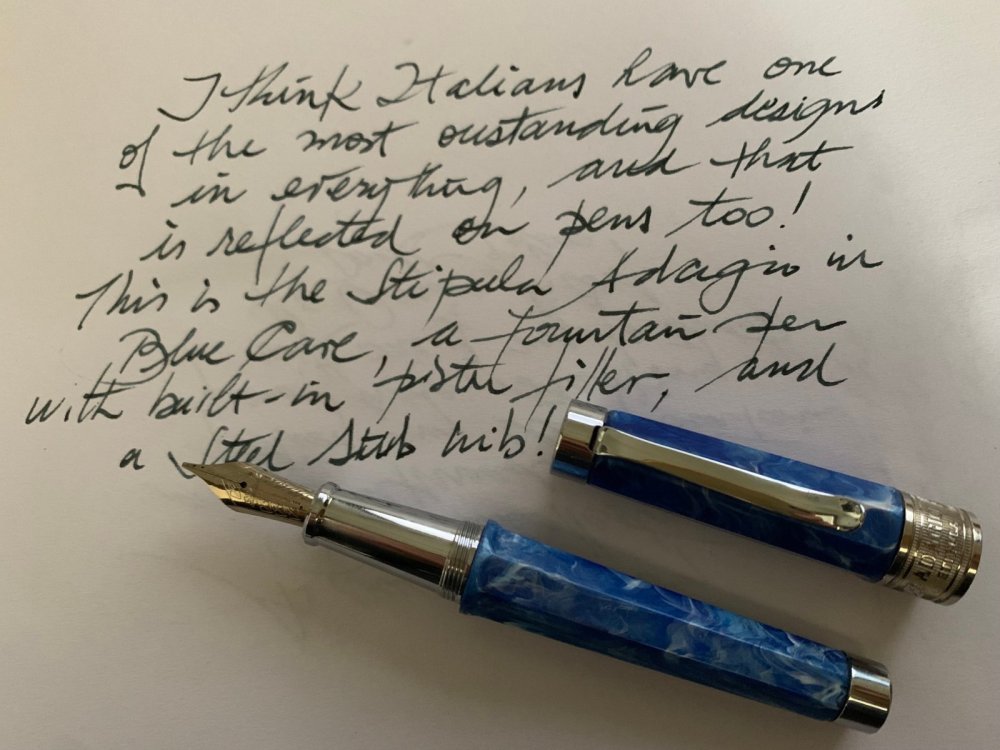 I think Italians have one
of the most oustanding designs
in everything, and that
is reflected on pens too!
This is the Stipula Adagio in
Blue Cave, a fountain pen
with built-in piston filler, and
a Steel Stub nib!
AD